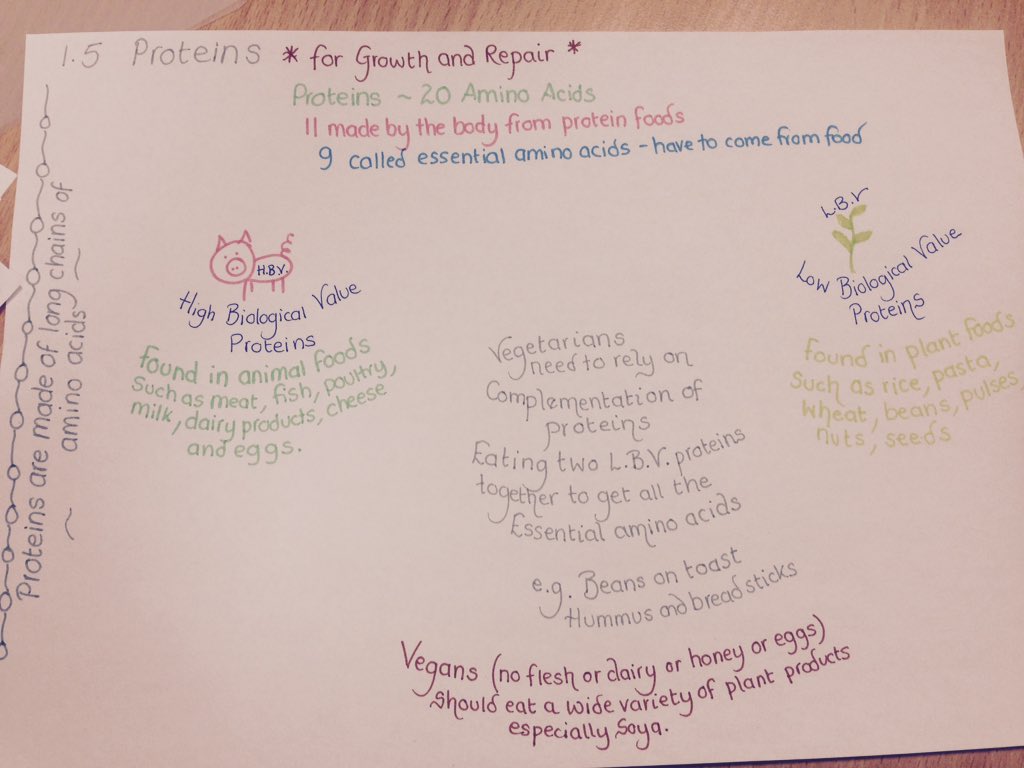 1.5 Proteins * for Growth and Repair *
Proteins ~ 20 Amino Acids
11 made by the body from protein foods
9 called essential amino acids - have to come from food
Proteins are made of long chains of
~ amino acids ~
H.B.V.
High Biological Value
Proteins
found in animal foods
Such as meat, fish, poultry,
milk, dairy products, cheese
and eggs.
Vegetarians
need to rely on
Complementation of
proteins
Eating two L.B.V. proteins
together to get all the
Essential amino acids
e.g. Beans on toast
Hummus and bread sticks
L.B.V
Low Biological Value
Proteins
found in plant foods
Such as rice, pasta,
wheat, beans, pulses,
nuts, seeds
Vegans (no flesh or dairy or honey or eggs)
Should eat a wide variety of plant products
especially Soya.